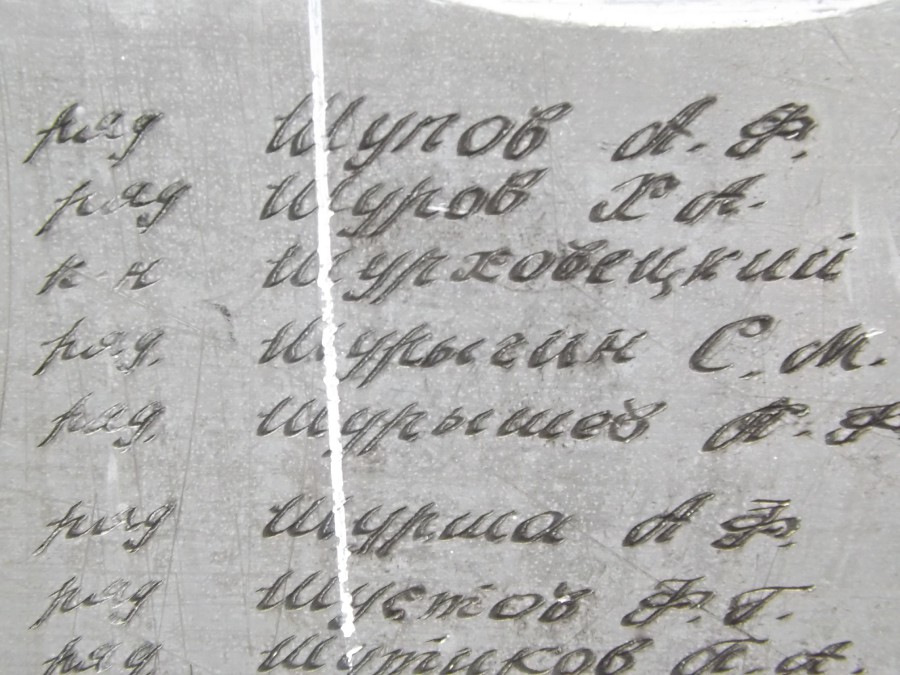 ряд Шупов А. Ф.
ряд Шуров Х А.
к-н Шурховецкий
ряд. Шурыгин С. М.
ряд. Шурышев
ряд Шурша А Ф.
ряд Шустов Ф. Г.
ряд Шутиков П. А.